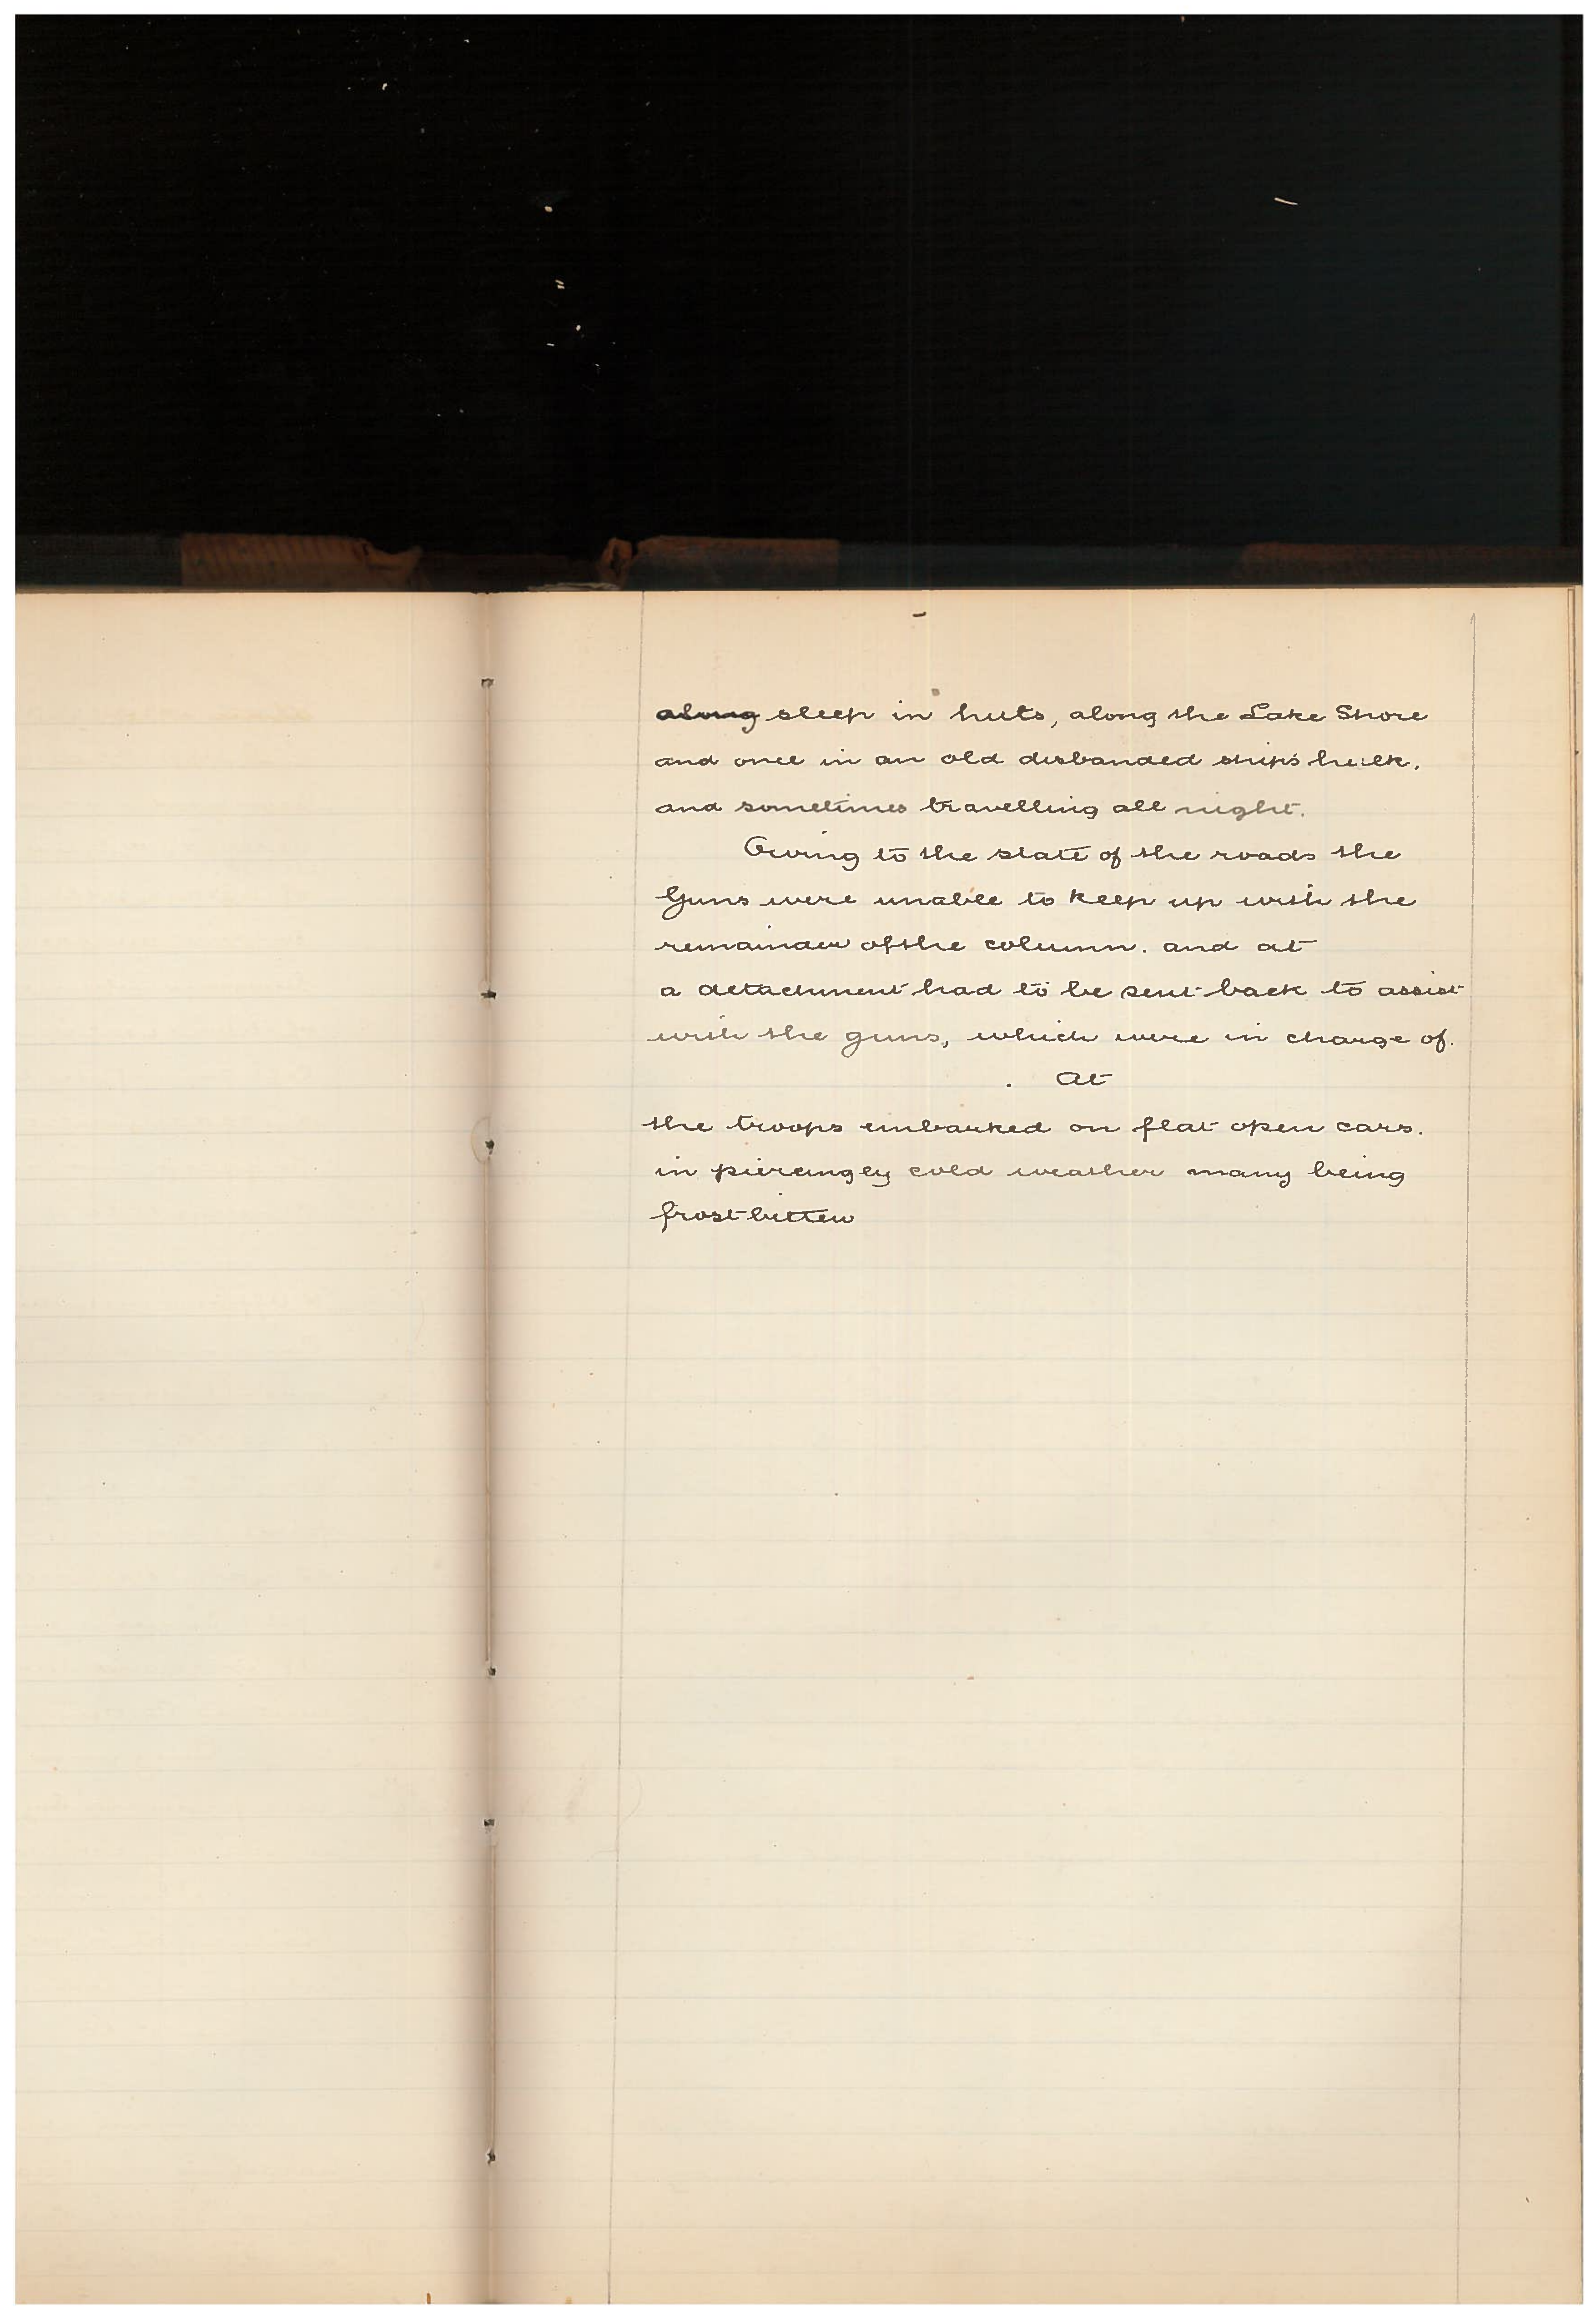 along sleep in huts, along the Lake Shore
and once in an old disbanded ships hulk.
and sometimes travelling all night.
Owing to the state of the roads the
Guns were unable to keep up with the
remainder of the column. and at
a detachment had to be sent back to assist
with the guns, which were in charge of.
. At
the troops embarked on flat open cars.
in piercingly cold weather many being
frostbitten